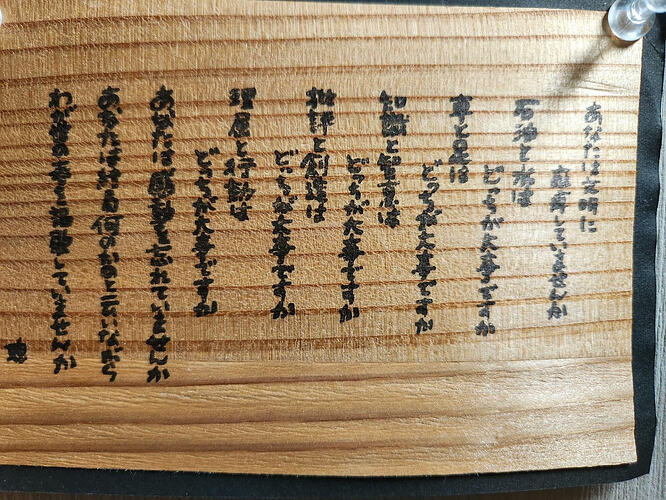 あなたは文明に
麻痺していませんか
石油と水は
どっちが大事ですか
車と足は
どっちが大事ですか
知識と智恵は
どっちが大事ですか
批評と創造は
どっちが大事ですか
理屈と行動は
どっちが大事ですか
あなたは感動を忘れていませんか
あなたは結局何のかのと云いながら
わが世の春を謳歌していませんか